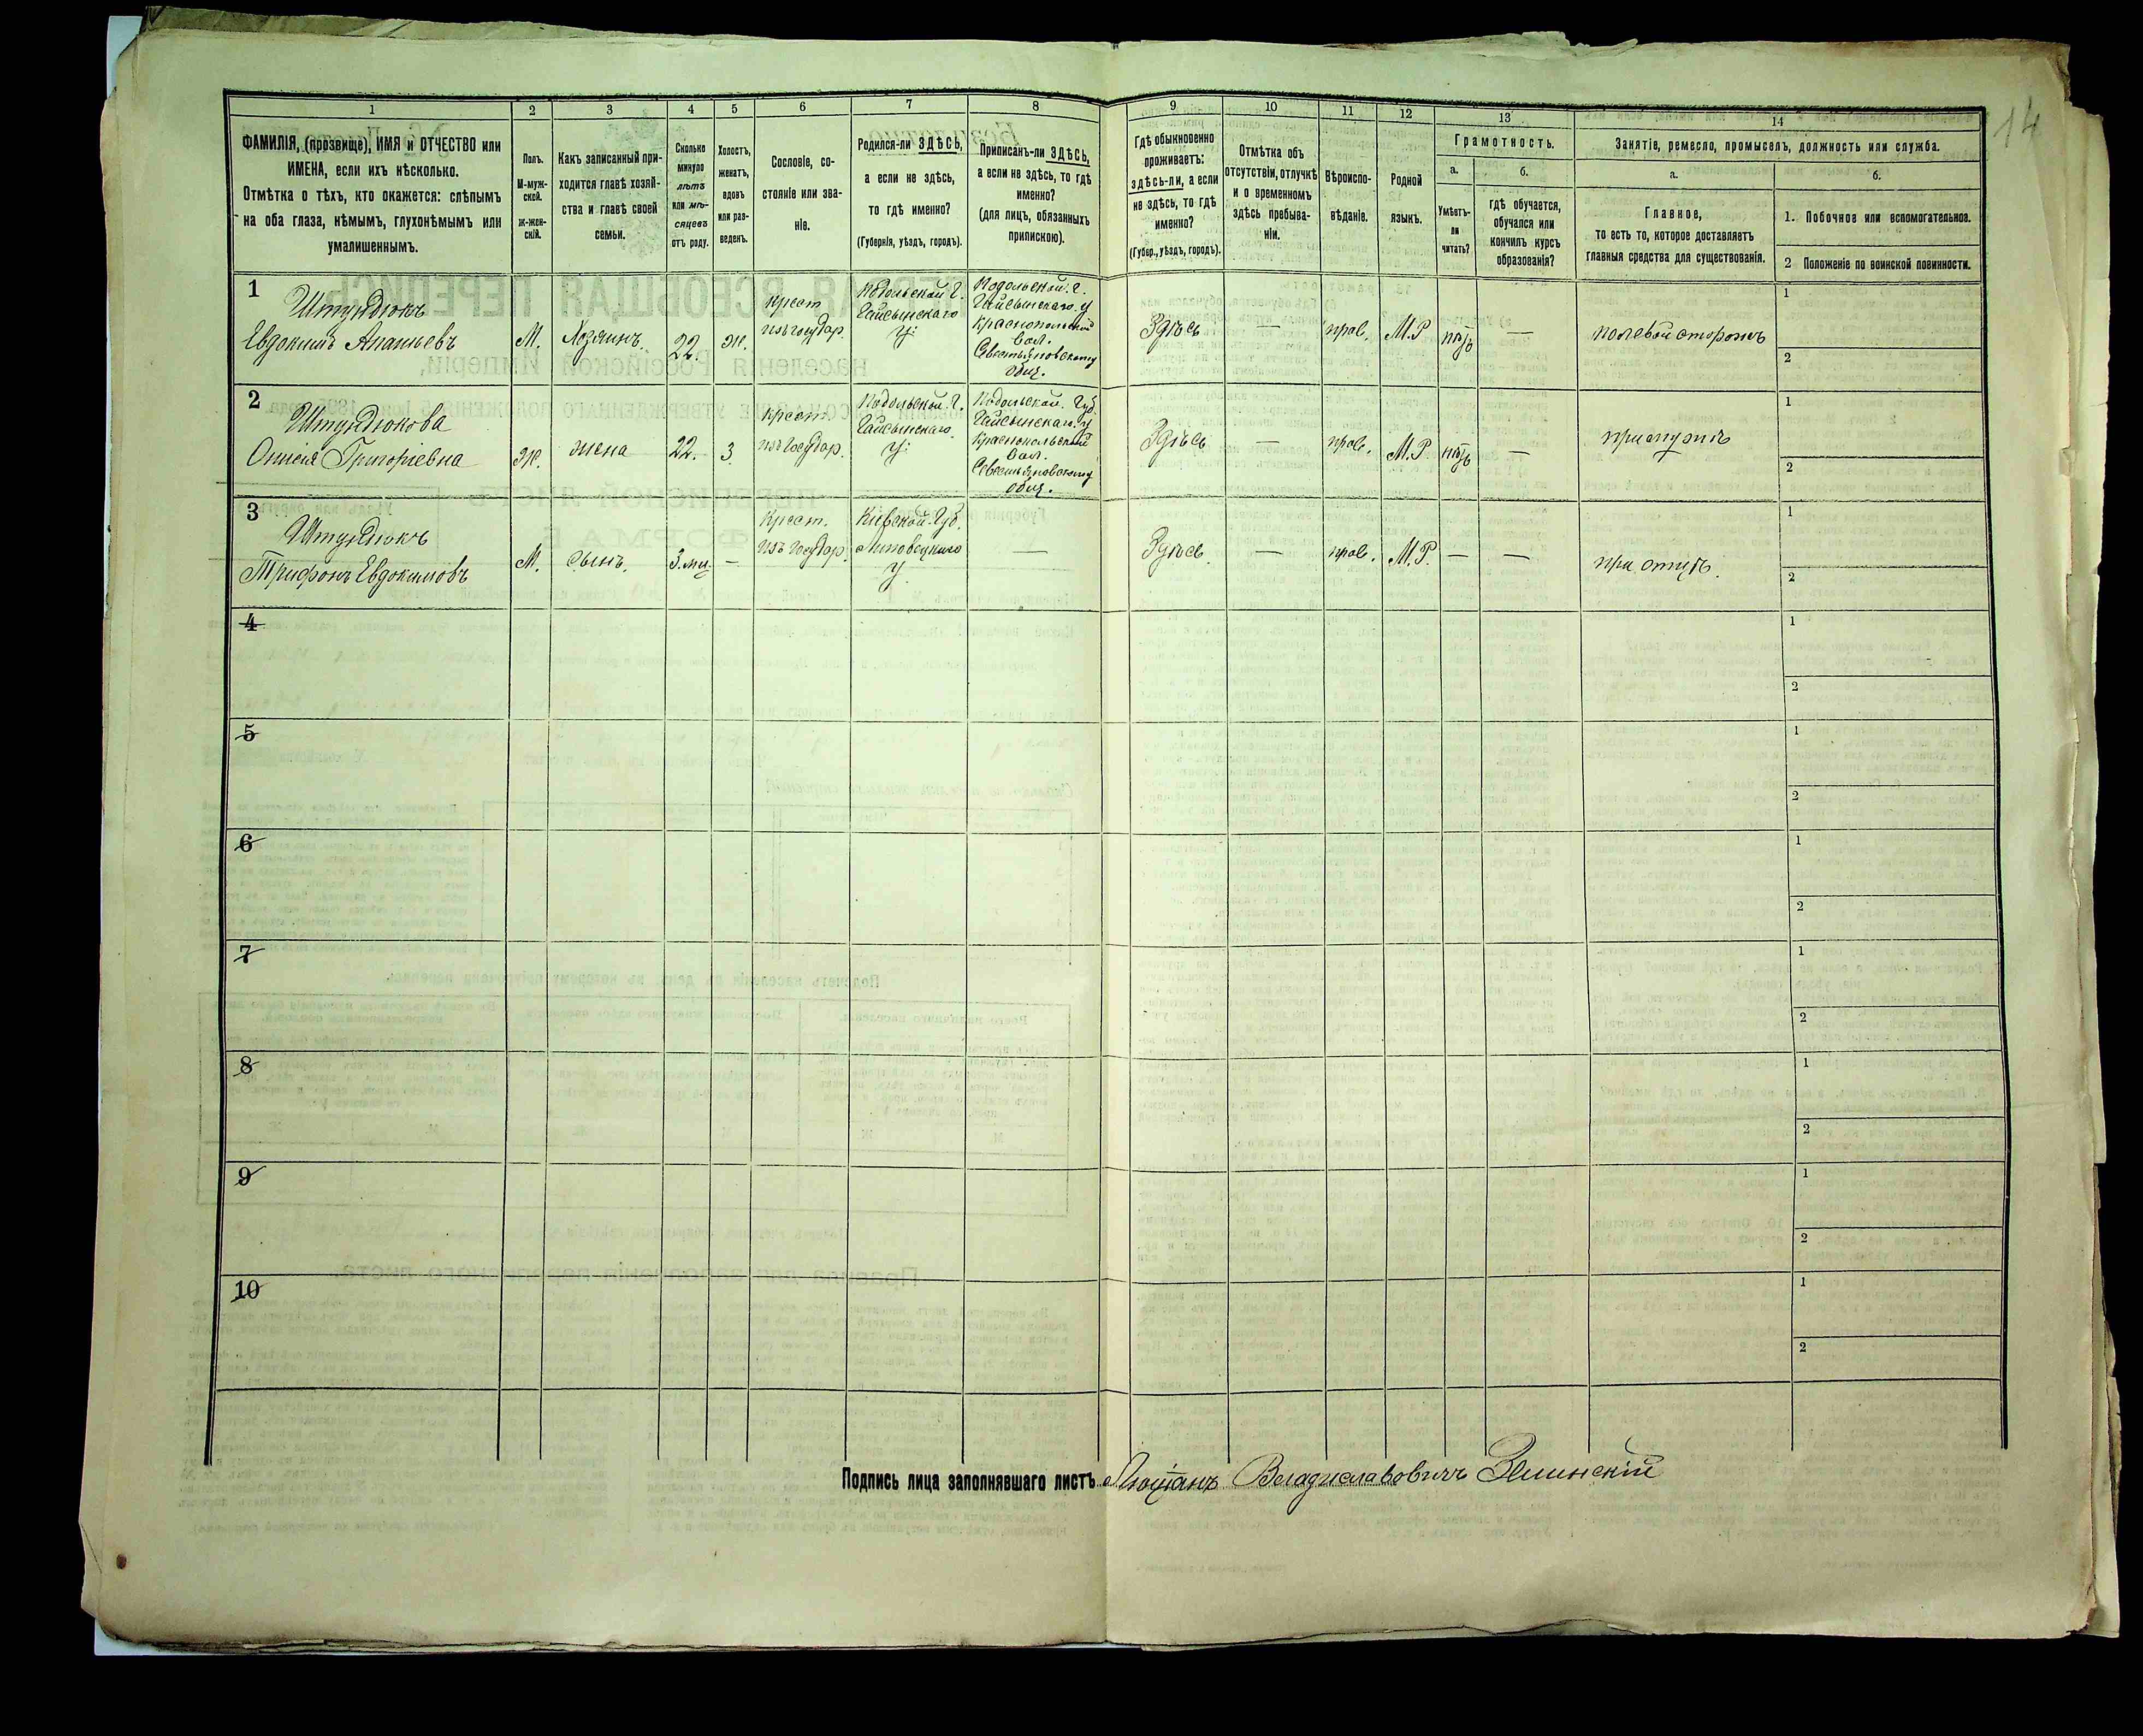 14
1
2
3
4
5
6
7
8
9
10
11
12
13
14
ФАМИЛІЯ, (прозвище), ИМЯ и ОТЧЕСТВО или
ИМЕНА, если ихъ нѣсколько.
Отмѣтка о тѣхъ, кто окажется: слѣпымъ
на оба глаза, нѣмымъ, глухонѣмымъ или
умалишеннымъ.
Полъ.
М-муж-
ской.
ж-жен-
скій.
Какъ записанный при-
ходится главѣ хозяй-
ства и главѣ своей
семьи.
Сколько
минуло
лѣтъ
или мѣ-
сяцевъ
отъ роду.
Холостъ,
женатъ,
вдовъ
или раз-
веденъ.
Сословіе, со-
стояніе или зва-
ніе.
Родился-ли ЗДѢСЬ,
а если не здѣсь,
то гдѣ именно?
(Губернія, уѣздъ, городъ).
Приписанъ-ли ЗДѢСЬ,
а если не здѣсь, то гдѣ
именно?
(для лицъ, обязанныхъ
припискою).
Гдѣ обыкновенно
проживаетъ:
здѣсь-ли, а если
не здѣсь, то гдѣ
именно?
(Губер., уѣздъ, городъ).
Отмѣтка объ
отсутствіи, отлучкѣ
и о временномъ
здѣсь пребыва-
ніи.
Вѣроиспо-
вѣданіе.
Родной
языкъ.
Грамотность.
а.
Умѣетъ-
ли
читать?
б.
гдѣ обучается,
обучался или
кончилъ курсъ
образованія?
Занятіе, ремесло, промыселъ, должность или служба.
а.
Главное,
то есть то, которое доставляетъ
главныя средства для существованія.
б.
1. Побочное или вспомогательное.
2 Положеніе по воинской повинности.
1
Штундюкъ
Евдокимъ Ананьевъ
М.
Хозяинъ.
22.
Ж.
крест
изъ государ.
Подольской Г.
Гайсынскаго
У:
Подольской. Г.
Гайсынскаго. У
Краснопольской
Вол.
Общ.
Здѣсь
—
прав.
М.Р
нѣтъ
—
полевой сторожъ
1
2
2
Штундюкова
Григоріевна
Ж.
жена
22.
З
крест.
изъ государ.
Подольской. Г.
Гайсынскаго.
У:
Подольской. Губ.
Гайсынскаго. У
Краснопольской
Вол.
Общ.
Здѣсь
—
прав.
М.Р.
нѣтъ
—
при мужѣ
1
2
3
Штундюкъ
Трифонъ Евдокимовъ
М.
сынъ.
3. мц.
—
крест.
изъ государ.
Кіевской. Губ.
Липовецкаго
У.
—
Здѣсь.
—
прав.
М.Р.
—
—
при отцѣ.
1
2
4
1
2
5
1
2
6
1
2
7
1
2
8
1
2
9
1
2
10
1
2
Подпись лица заполнявшаго листъ Люціанъ Владиславовичъ Зѣлинскій